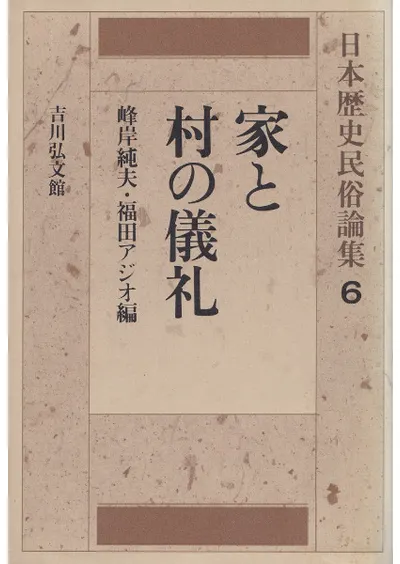 日本歴史民俗論集 6
家と
村の儀礼
峰岸純夫・福田アジオ編
吉川弘文館